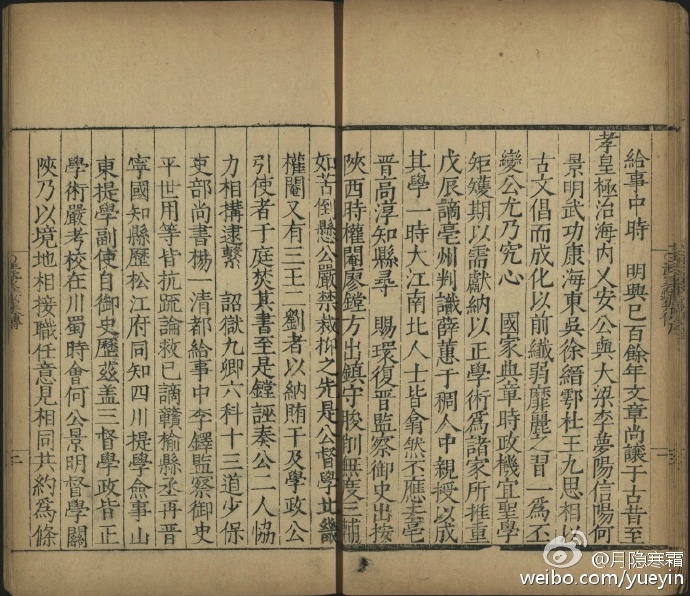 給事中時 明興已百餘年文章尚讓于古昔至
孝皇極治海内乂安公與大梁李夢陽信陽何
景明武功康海東吳徐縉鄠杜王九思相以
古文倡而成化以前纖弱靡麗之習一爲丕
變公尤乃究心 國家典章時政機宜聖學
矩矱期以需獻納以正學術爲諸家所推重
戊辰謫亳州判識薛蕙于稠人中親授以成
其學一時大江南北人士皆翕然丕應去亳
晉高淳知縣尋 賜環復晉監察御史出按
陝西時權閹廖鏜方出鎮守朘削無度三輔
如苦倒懸公嚴禁裁抑之先是公督學北畿
權閹又有三王二劉者以納賄干及學政公
引使者于庭焚其書至是鏜誣奏公二人恊
力相搆逮繫 詔獄九卿六科十三道少保
吏部尚書楊一清都給事中李鐸監察御史
平世用等皆抗疏論救已謫贛榆縣丞再晉
寧國知縣歷松江府同知四川提學僉事山
東提學副使自御史歷茲盖三督學政皆正
學術嚴考校在川蜀時會何公景明督學關
陝乃以境地相接職任意見相同共約爲條
@月隐寒霜
weibo.com/yueyin